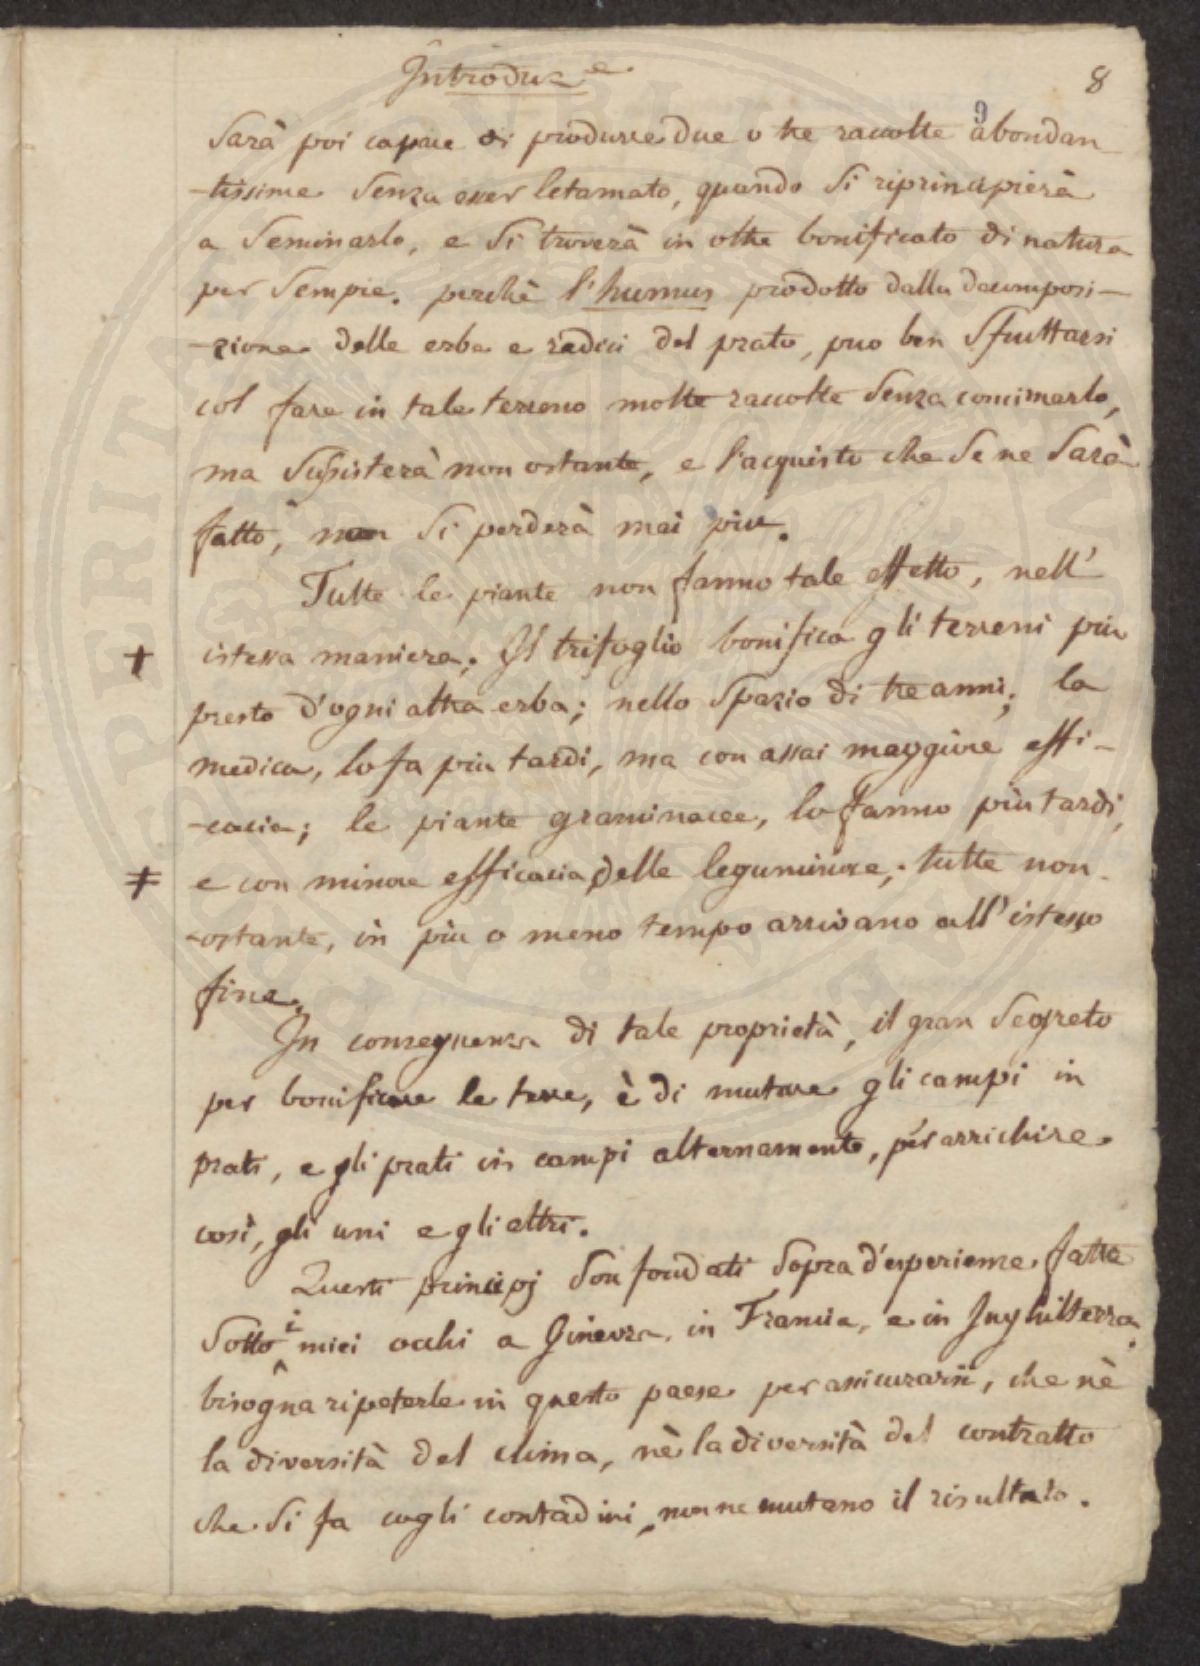 Introduz.e
8
9
sarà poi capace di produrre due o tre raccolte abondan
-tissime senza esser letamato, quando si riprincipierà
a seminarlo, e si troverà in oltre bonificato di natura
per sempre. perchè l'humus prodotto dalla decomposi-
-zione delle erbe e radici del prato, puo ben sfruttarsi
col fare in tale terreno molte raccolte senza concimarlo,
ma susisterà non ostante, e l'acquisto che se ne sarà
fatto, non si perderà mai piu.
Tutte le piante non fanno tale effetto, nell'
+ istessa maniera. Il trifoglio bonifica gli terreni piu
presto d'ogni altra erba; nello spazio di tre anni; la
medica, lo fa piu tardi, ma con assai maggiore effi-
-cacia; le piante graminacee, lo fanno più tardi,
‡ e con minore efficacia delle leguminose; tutte non-
-ostante, in piu o meno tempo arrivano all'istesso
fine.
In conseguenza di tale proprietà, il gran segreto
per bonificare le terre, è di mutare gli campi in
prati, e gli prati in campi alternamente, per arrichire
così, gli uni e gli altri.
Questi principj son fondati sopra d'esperienze fatte
sotto i miei occhi a Ginevra, in Francia, e in Inghilterra.
bisogna ripeterle in questo paese per assicurarsi, che nè
la diversità del clima, nè la diversità del contratto
che si fa cogli contadini, non ne mutano il risultato.